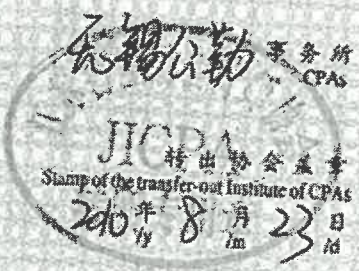 无锡公勤 事务所
CPAs
JICPA
转出协会盖章
Stamp of the transfer-out Institute of CPAs
2010年 8月 23日
/y /m /d